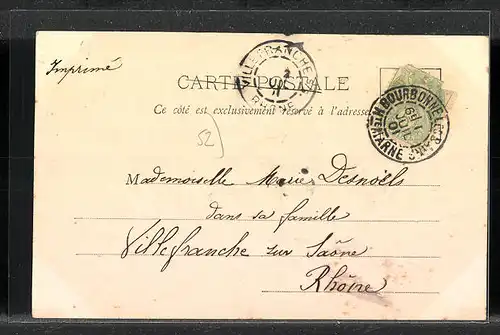 Imprimé
VILLEFRANCHE
RHONE
CARTE POSTALE
Ce côté est exclusivement réservé à l'adresse
BOURBONNE-LES-BAINS
HTE MARNE
52
Mademoiselle Marie Desnoëls
dans sa famille
Villefranche sur Saône
Rhône